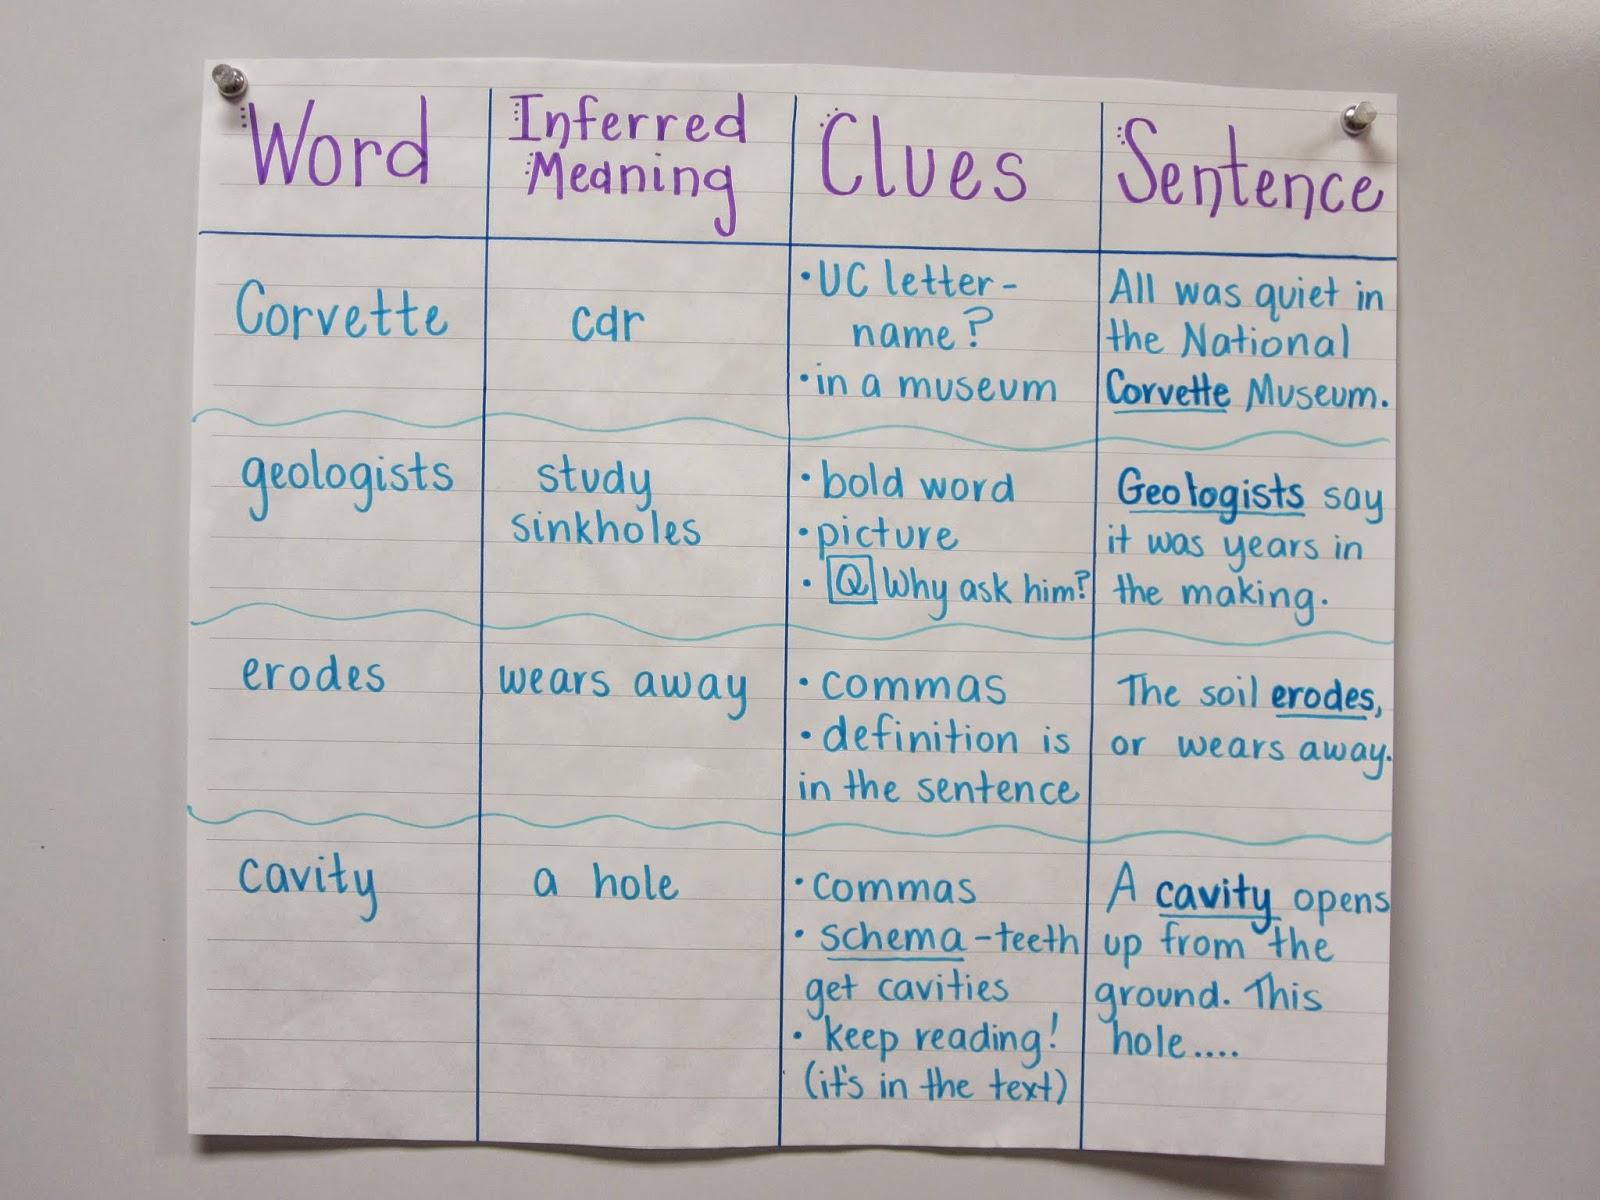 Word
Inferred
Meaning
Clues
Sentence
Corvette
car
• UC letter-
name?
• in a museum
All was quiet in
the National
Corvette Museum.
geologists
study
sinkholes
• bold word
• picture
• Q Why ask him?
Geologists say
it was years in
the making.
erodes
wears away
• commas
• definition is
in the sentence
The soil erodes,
or wears away.
cavity
a hole
• commas
• schema - teeth
get cavities
• keep reading!
(it's in the text)
A cavity opens
up from the
ground. This
hole....